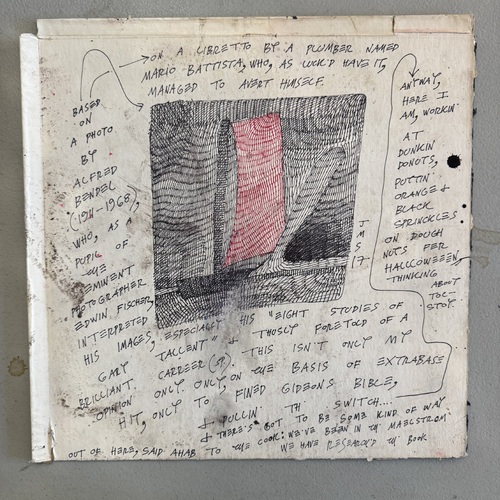 ON A LIBRETTO BY A PLUMBER NAMED
MARIO BATTISTA, WHO, AS LUCK'D HAVE IT,
MANAGED TO AVERT HIMSELF.
BASED
ON
A PHOTO
BY
ALFRED
BENDEL
(1911-1968),
WHO, AS A
PUPIL OF
THE
EMINENT
PHOTOGRAPHER
EDWIN FISCHER,
INTERPRETED
HIS IMAGES, ESPECIALLY HIS "EIGHT STUDIES OF
GARY TALLENT" & THUSLY FORETOLD OF A
BRILLIANT CAREER (SP). THIS ISN'T ONLY MY
OPINION ONLY ONLY ON THE BASIS OF EXTRABASE
HIT, ONLY TO FINED GIDEON'S BIBLE,
& PULLIN' TH' SWITCH....
& THERE'S GOT TO BE SOME KIND OF WAY
OUT OF HERE, SAID AHAB TO THE COOK: WE'VE BEEN IN TH' MAELSTROM
WE HAVE RESEARCH'D TH' BOOK
JMS
17.
ANYWAY,
HERE I
AM, WORKIN'
AT
DUNKIN
DONUTS,
PUTTIN'
ORANGE &
BLACK
SPRINCKLES
ON DOUGH
NUTS FER
HALLOWEEEN,
THINKING
ABOUT
TOL-
STOY.